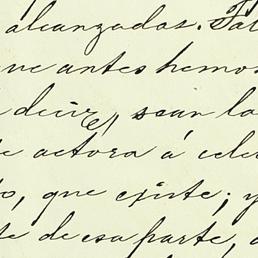 alcanzados. Fal
que antes hemos
decir, sean la
e actora á cele
o, que existe; y
te de esa parte, a